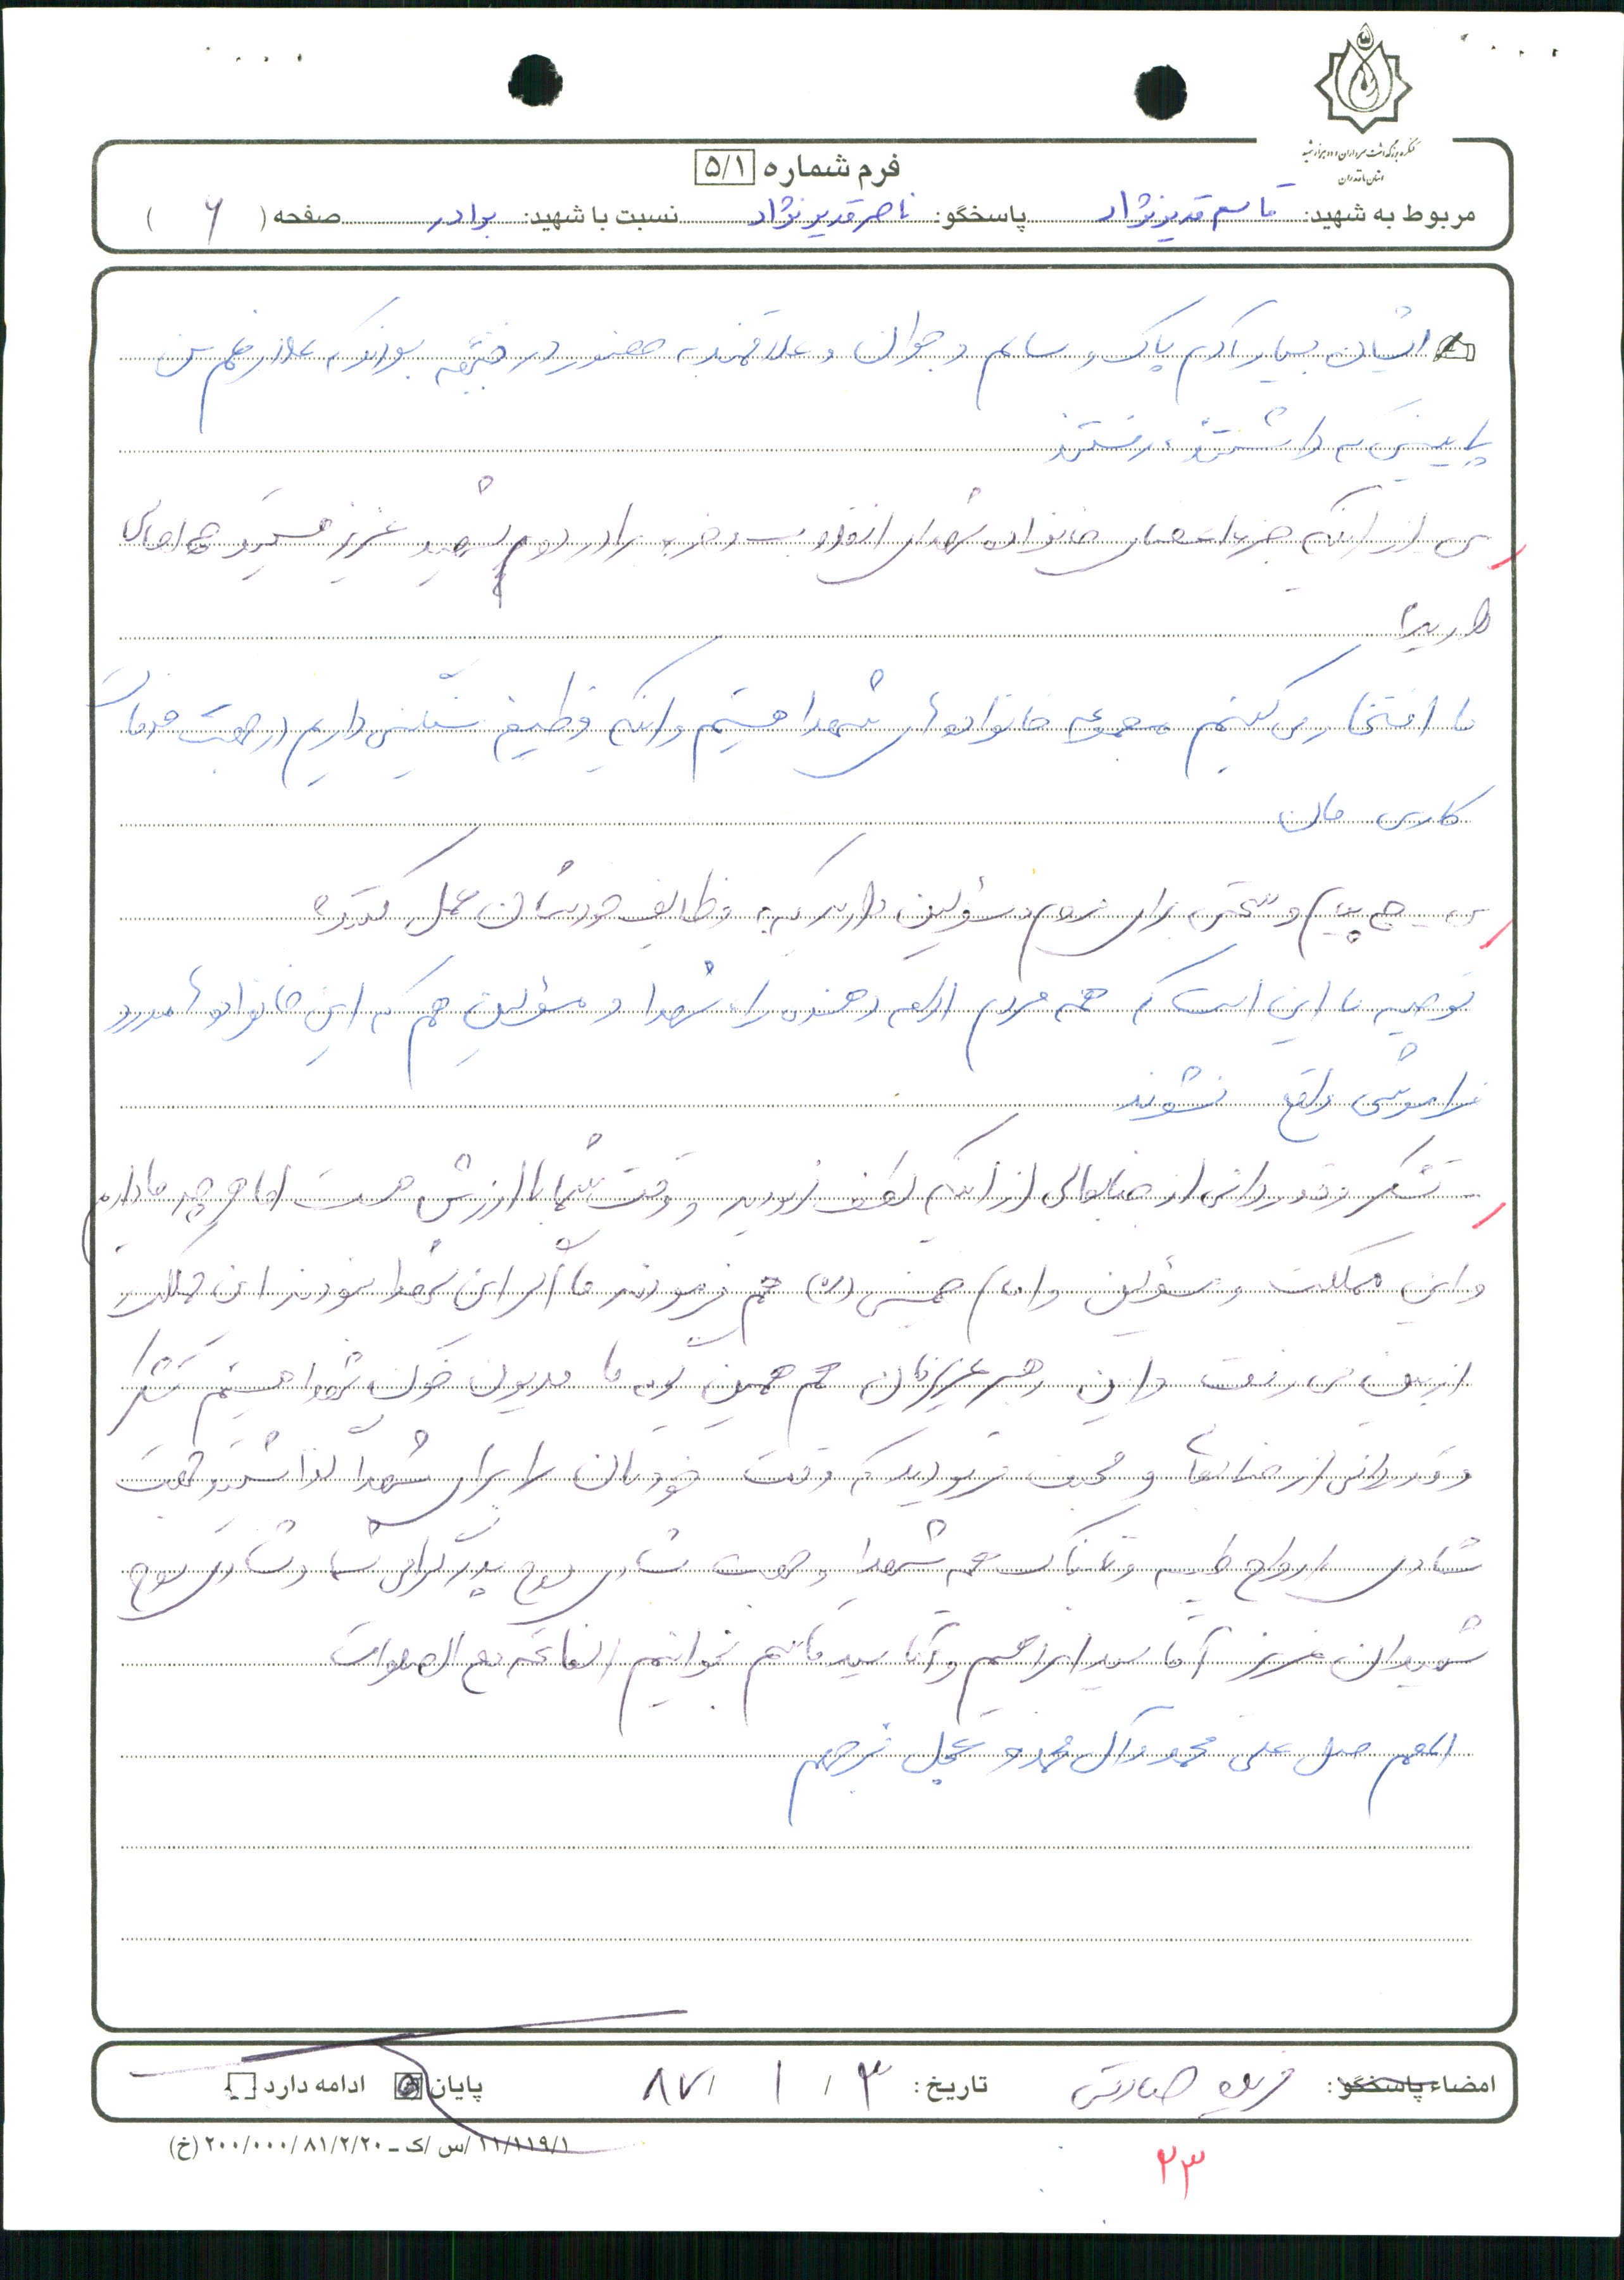 کنگره بزرگداشت سرداران و ده هزار شهید
استان مازندران
فرم شماره ۵/۱
مربوط به شهید: قاسم قدیرنژاد پاسخگو: ناصر قدیرنژاد نسبت با شهید: برادر صفحه ( ۶ )
ایشان بسیار آدم پاک و سالم و جوان و علاقمند به حضور در جبهه بودند که علارغم سن
پایینی که داشتند، رفتند
س- از اینکه جز اعضای خانواده شهدای انقلاب و جزء برادر دوم شهید عزیز هستید چه احساسی
دارید؟
ما افتخار می کنیم مجموعه خانواده های شهدا هستیم و اینکه وظیفه سنگینی داریم در جهت خدمات
کاری مان
س- چه پیام و سخنی برای مردم و مسئولین دارید که به وظایف خودشان عمل کنند؟
توصیه ما این است که همه مردم ادامه دهنده راه شهدا و مسئولین هم که این خانواده ها مورد
فراموشی واقع نشوند
- تشکر و قدردانی از جنابعالی از اینکه لطف فرمودید و وقت شما با ارزش هست اما هر چه ما داریم
و این مملکت و مسئولین و امام خمینی (ره) هم فرمودند ما اگر این شهدا نبودند این مملکت
از بین می رفت و این رهبر عزیزمان هم همین گونه ما مدیون خون شهدا هستیم تشکر
و قدردانی از جنابعالی و محبت فرمودید که وقت خودتان را برای شهدا گذاشتید جهت
شادی ارواح طیبه و تابناک همه شهدا و جهت شادی روح پدر گرامی شما و شادی روح
شهیدان عزیز آقا سید ابراهیم و آقا سید قاسم بخوانیم الفاتحه مع الصلوات
اللهم صل علی محمد و آل محمد و عجل فرجهم
امضاء پاسخگو: تاریخ: ۳ / ۱ / ۸۷ پایان ادامه دارد
۱۱/۱۱۹/۱ /س /ک – ۸۱/۲/۲۰ /۲۰۰/۰۰۰ (خ)
۲۳